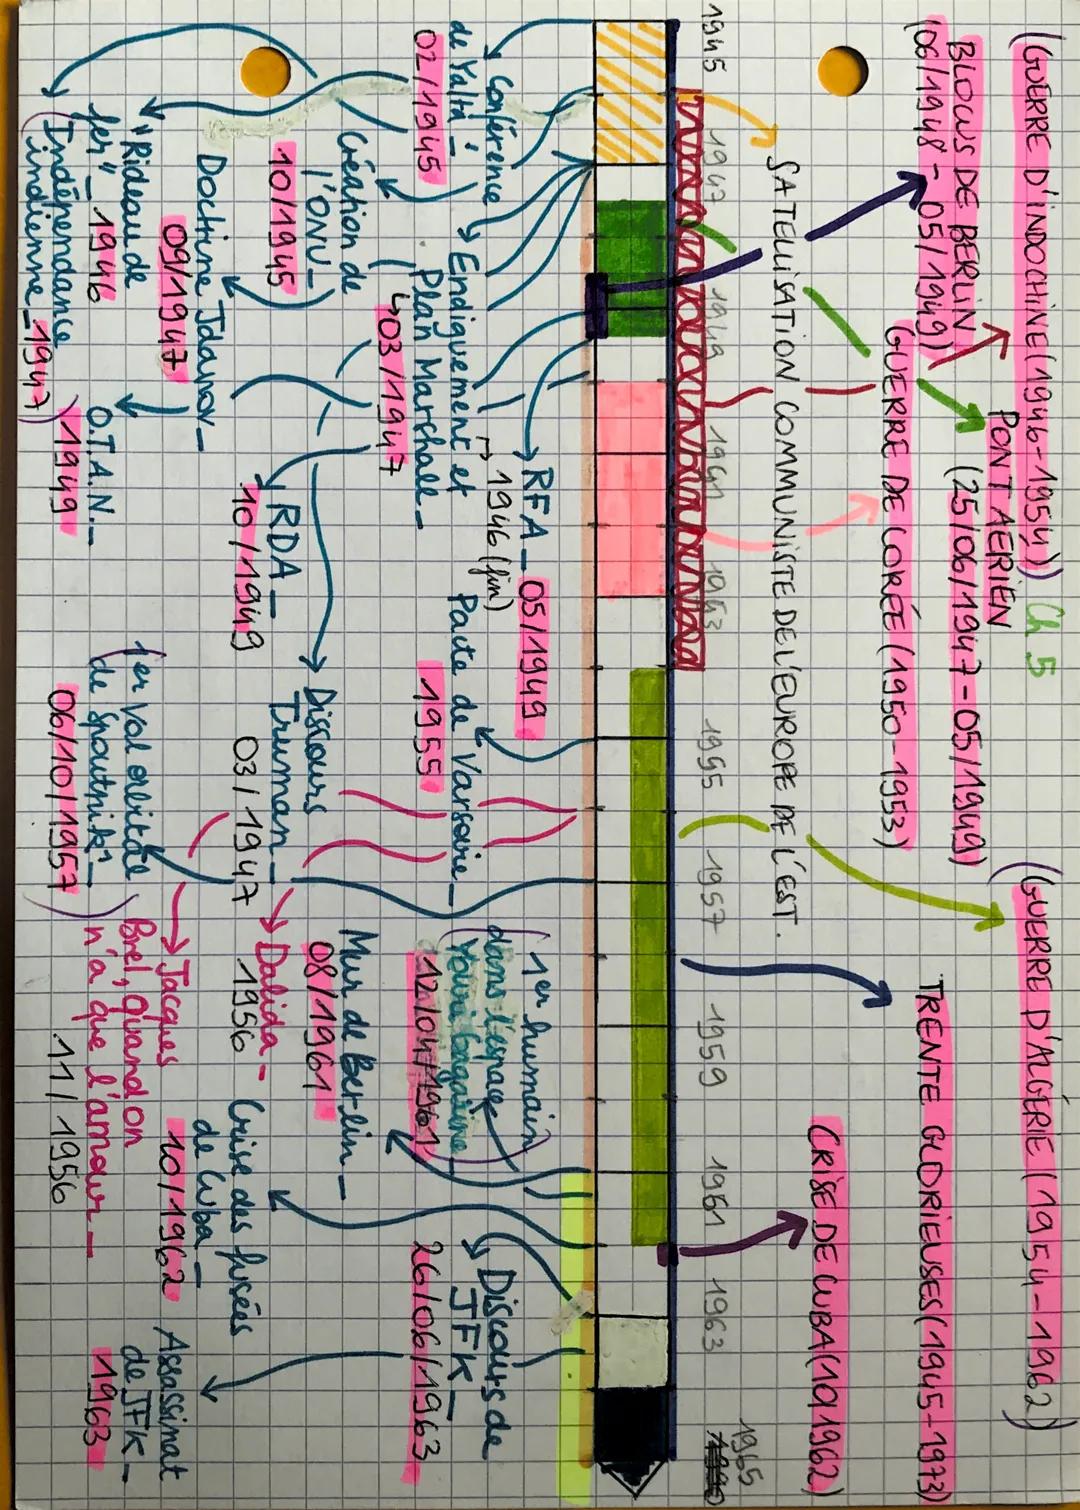 (GUERRE D'INDOCHINE (1946-1954)) Ch 5
(GUERRE D'ALGÉRIE (1954-1962))
BLOCUS DE BERLIN
(06/1948-05/1949)
PONT AÉRIEN
(25/06/1947-05/1949)
TRENTE GLORIEUSES (1945-1973)
GUERRE DE CORÉE (1950-1953)
CRISE DE CUBA (10/1962)
SATELLISATION COMMUNISTE DE L'EUROPE DE L'EST.
1945
1947
1949
1951
1953
1955
1957
1959
1961
1963
1965
Conférence
de Yalta_
02/1945
RFA_ 05/1949
↳ 1946 (fin)
Endiguement et
Plan Marshall_
↳ 03/1947
Pacte de Varsovie_
1955
(1er humain
dans l'espace
Youri Gagarine_
12/04/1961)
Discours de
JFK_
26/06/1963
Création de
l'ONU_
10/1945
Mur de Berlin_
08/1961
Discours
Truman_
03/1947
Doctrine Jdanov_
09/1947
RDA_
10/1949
Dalida_
1956
Crise des fusées
de Cuba_
10/1962
"Rideau de
fer"_1946
O.T.A.N._
1949
(Indépendance
indienne_1947)
(1er vol orbital
de spoutnik 1_
06/10/1957)
Jacques
Brel, quand on
n'a que l'amour_
11/1956
Assassinat
de JFK_
1963